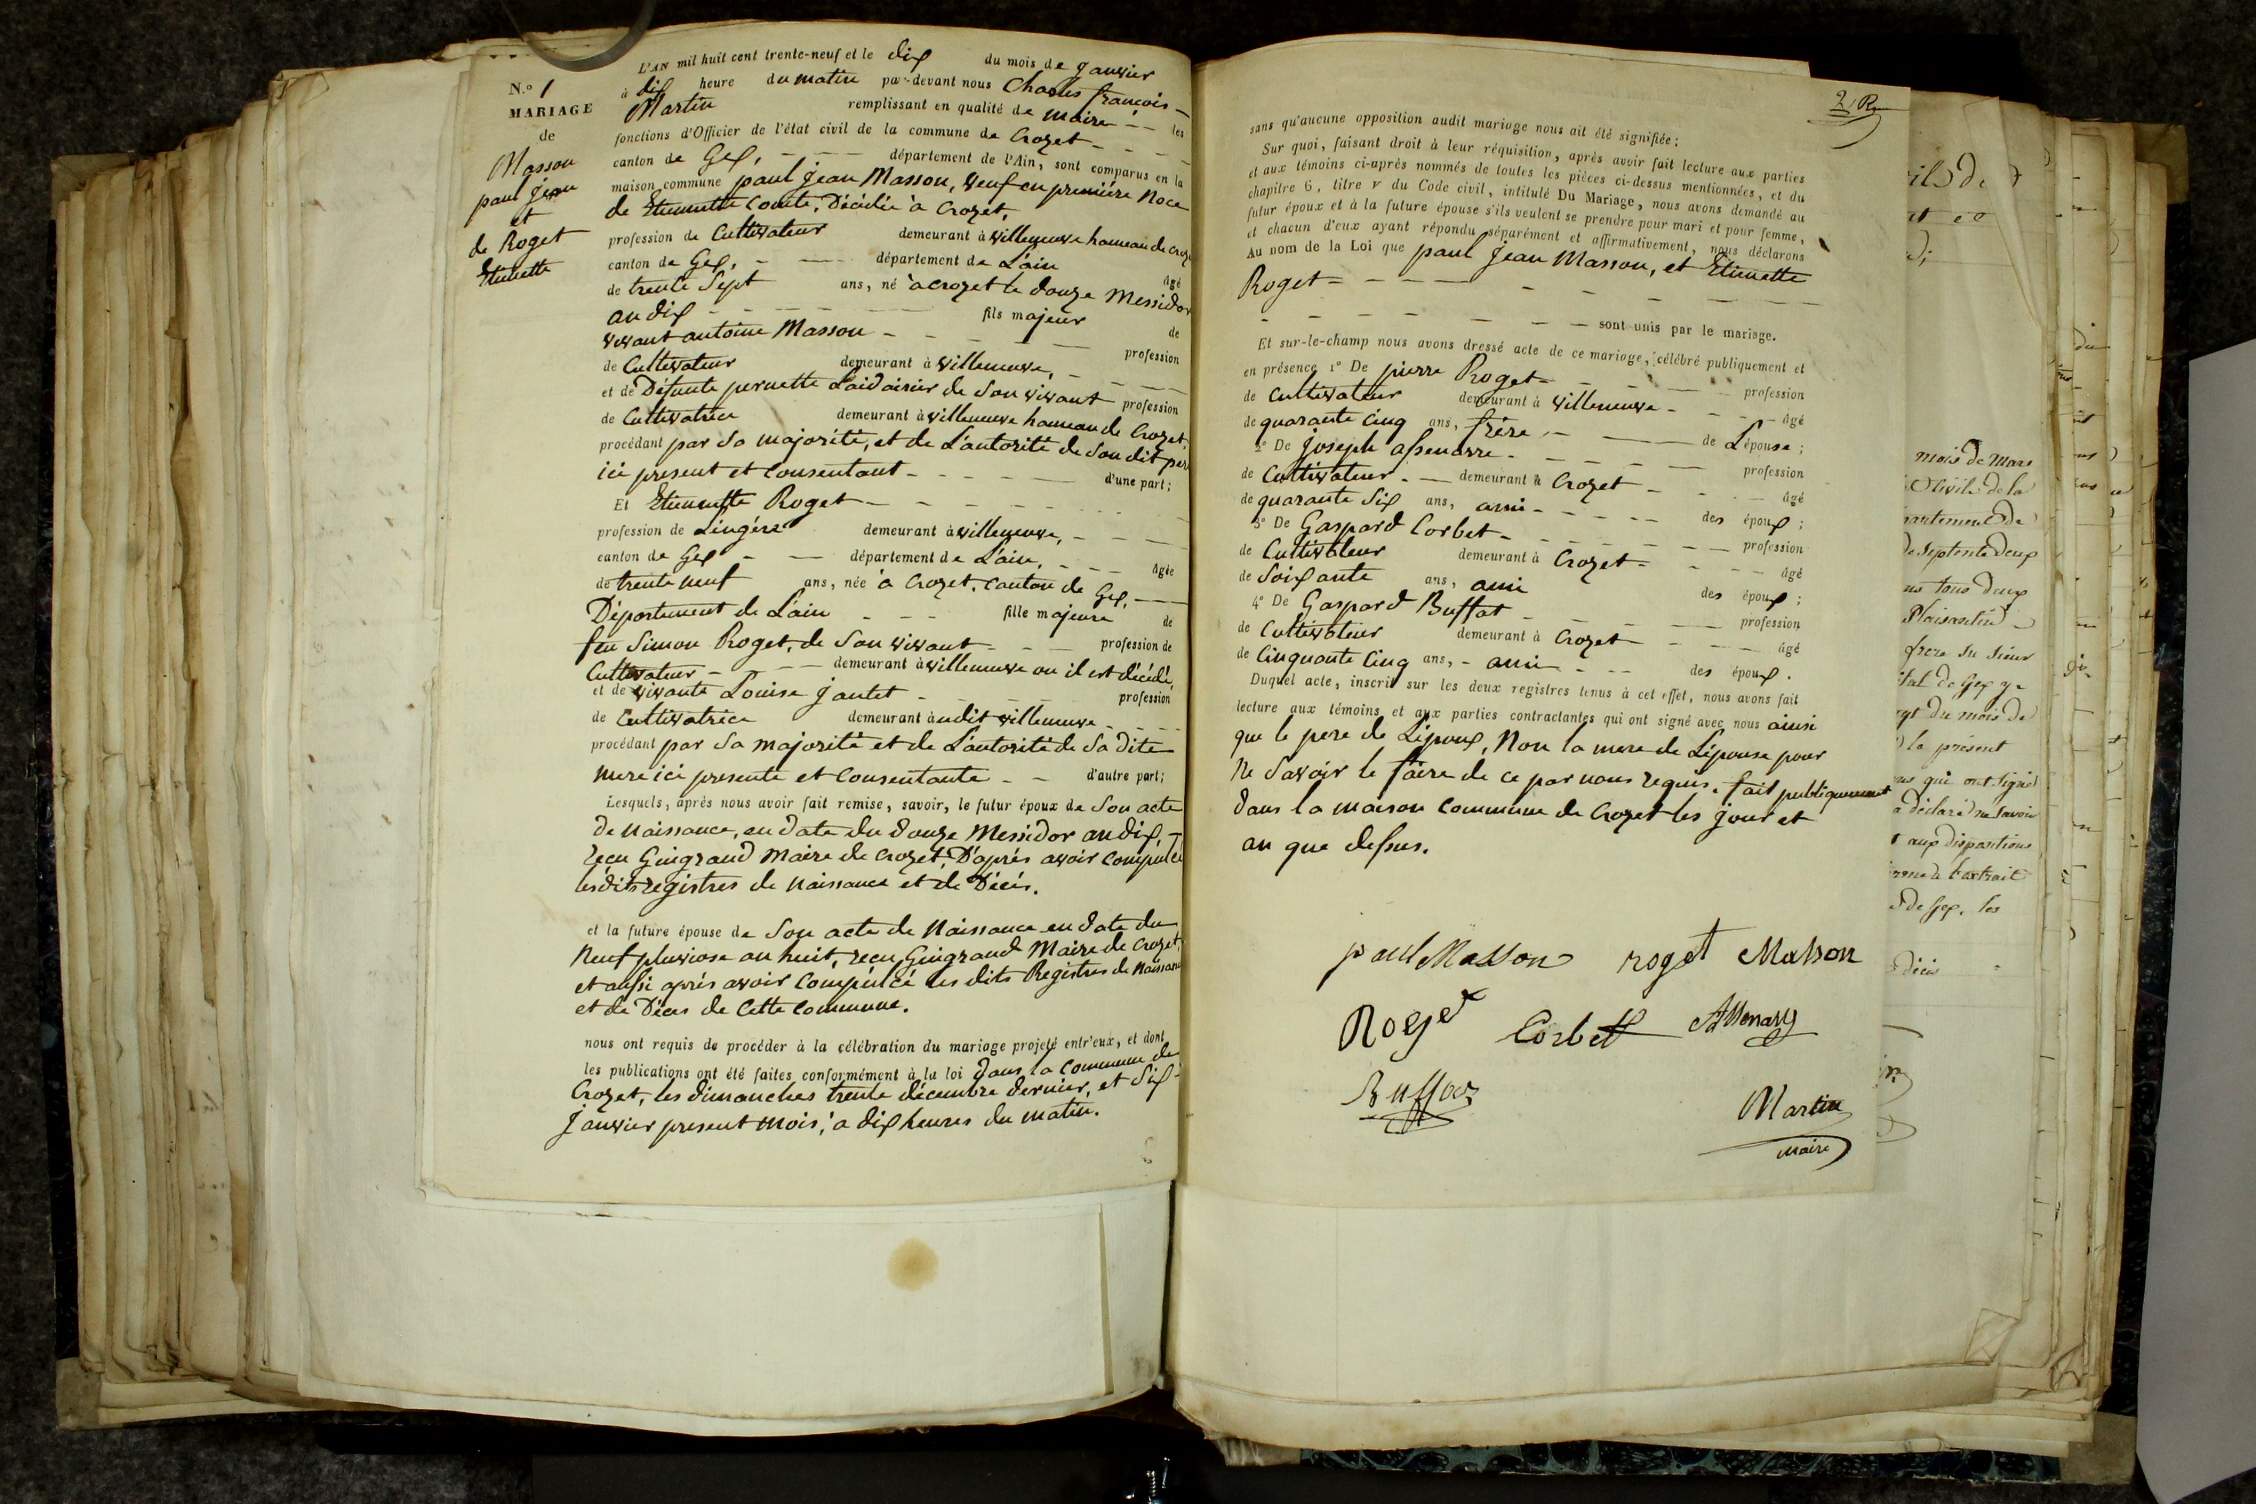 N.o 1
MARIAGE
de
Masson
paul jean
et
de Roget
Etiennette
L'AN mil huit cent trente-neuf et le dix du mois de janvier
à dix heure du matin par-devant nous Charles françois
Martin remplissant en qualité de maire les
fonctions d'Officier de l'état civil de la commune de Crozet
canton de Gex, département de l'Ain, sont comparus en la
maison commune paul jean Masson, veuf en première Noce
de Etiennette Comte, Décédée à Crozet,
profession de Cultivateur demeurant à villeneuve hameau de Crozet
canton de Gex, département de L'ain âgé
de trente Sept ans, né à crozet le douze Messidor
an dix fils majeur de
vivant antoine Masson profession
de Cultivateur demeurant à villeneuve,
et de Défunte pernette Laidaivier de Son vivant profession
de Cultivatrice demeurant à villeneuve hameau de Crozet,
procédant par Sa majorité, et de L'autorité de Son dit pere
ici present et Consentant d'une part;
Et Etiennette Roget
profession de Lingère demeurant à villeneuve,
canton de Gex département de L'ain, âgée
de trente neuf ans, née à Crozet, Canton de Gex,
Département de L'ain fille majeure de
feu Simon Roget, de Son vivant profession de
Cultivateur demeurant à villeneuve ou il est décédé,
et de vivante Louise jantet profession
de Cultivatrice demeurant à udit villeneuve
procédant par Sa majorité et de L'autorité de Sa dite
mere ici presente et Consentante d'autre part;
Lesquels, après nous avoir fait remise, savoir, le futur époux de Son acte
de Naissance, en date du douze Messidor an dix,
reçu Gingraud Maire de Crozet, D'après avoir Compulcé
lesdits registres de Naissance et de Décés.
et la future épouse de Son acte de Naissance en date du
Neuf pluviose an huit, reçu Gingraud Maire de Crozet,
et aussi après avoir Compulcé les dits Registres de Naissance
et de Décés de Cette Commune.
nous ont requis de procéder à la célébration du mariage projeté entr'eux, et dont
les publications ont été faites conformément à la loi dans la Commune de
Crozet, les dimanches trente décembre dernier, et Six
janvier present mois, à dix heures du matin.
2 R
sans qu'aucune opposition audit mariage nous ait été signifiée;
Sur quoi, faisant droit à leur réquisition, après avoir fait lecture aux parties
et aux témoins ci-après nommés de toutes les pièces ci-dessus mentionnées, et du
chapitre 6, titre v du Code civil, intitulé Du Mariage, nous avons demandé au
futur époux et à la future épouse s'ils veulent se prendre pour mari et pour femme,
et chacun d'eux ayant répondu séparément et affirmativement, nous déclarons
Au nom de la Loi que paul jean Masson, et Etiennette
Roget
sont unis par le mariage.
Et sur-le-champ nous avons dressé acte de ce mariage, célébré publiquement et
en présence 1° De pierre Roget profession
de Cultivateur demeurant à villeneuve âgé
de quarante Cinq ans, frère de L'épouse;
2° De joseph assenarre profession
de Cultivateur demeurant à Crozet âgé
de quarante Six ans, ami des époux;
3° De Gaspard Corbet profession
de Cultivateur demeurant à Crozet âgé
de Soixante ans, ami des époux;
4° De Gaspard Buffat profession
de Cultivateur demeurant à Crozet âgé
de Cinquante Cinq ans, ami des époux.
Duquel acte, inscrit sur les deux registres tenus à cet effet, nous avons fait
lecture aux témoins et aux parties contractantes qui ont signé avec nous ainsi
que le pere de L'époux, Non la mere de L'épouse pour
Ne Savoir le faire de ce par nous requis. fait publiquement
dans la maison Commune de Crozet les jour et
an que dessus.
paul Masson roget Masson
Roget Corbet
Martin
maire
mois de Mars
Civil de la
Plaisantin
frere du Sieur
du mois de
le présent
qui ont signé
a déclaré ne Savoir
aux dispositions
de Gex, les